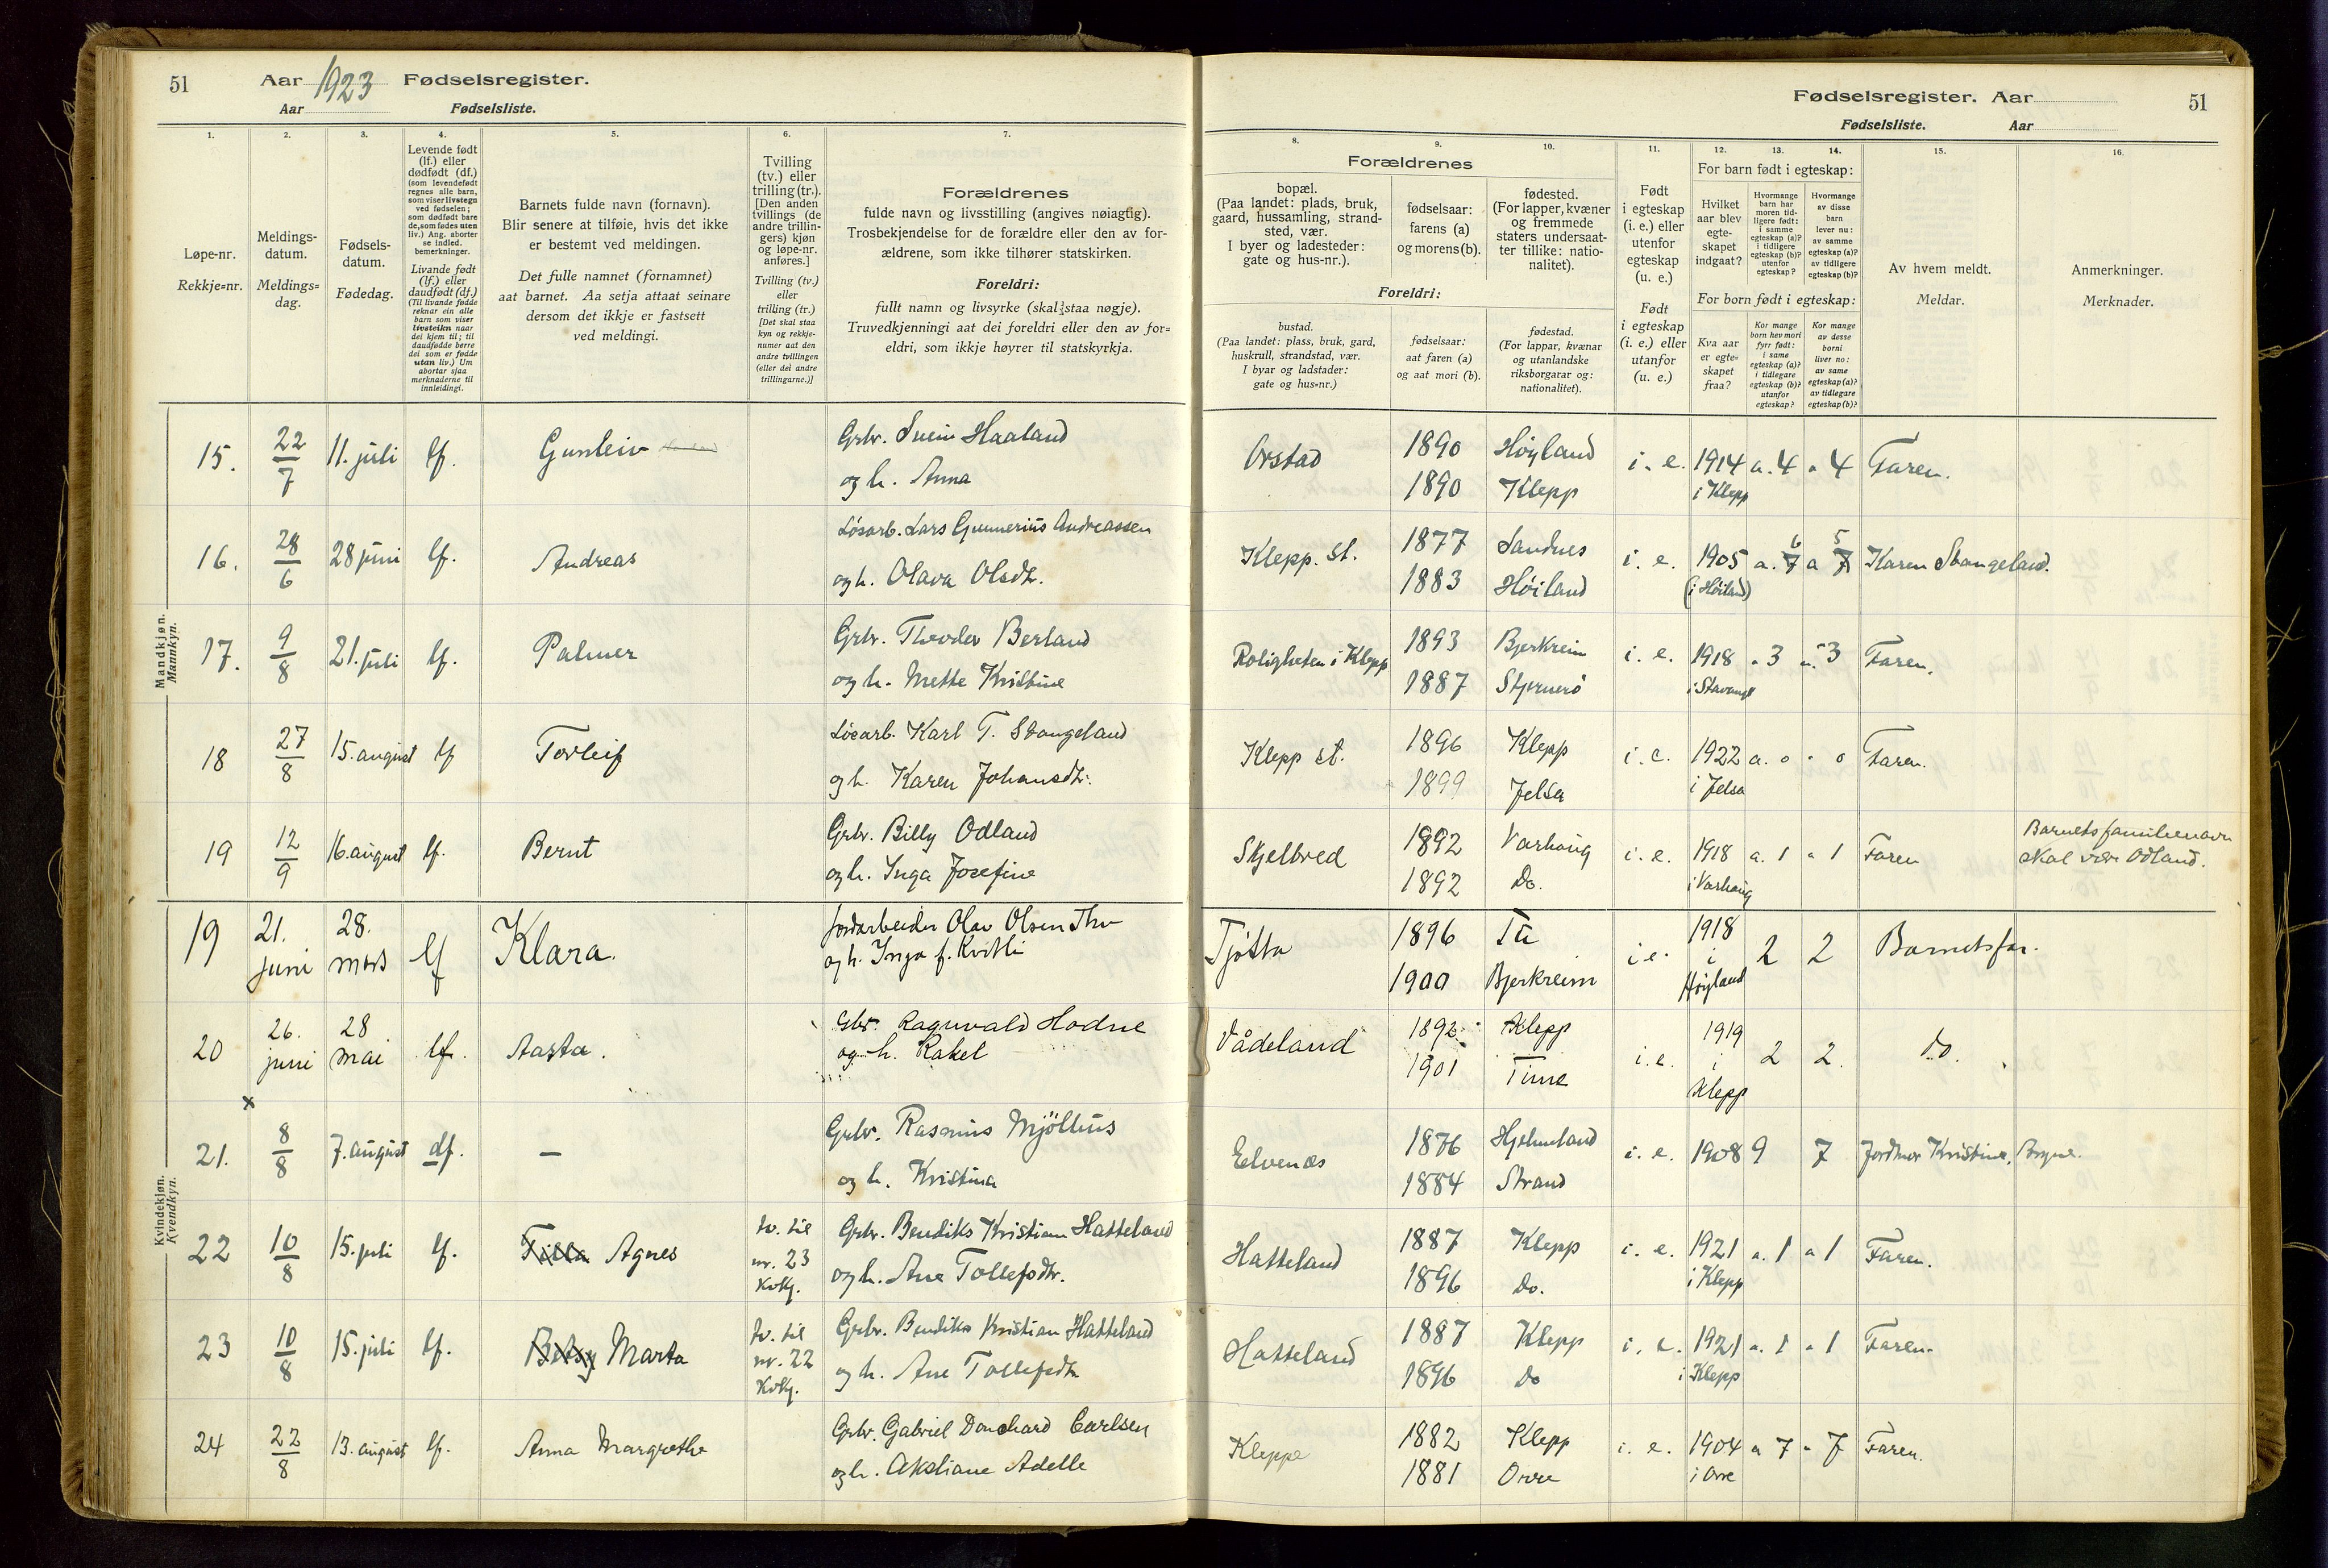 51 Aar 1923 Fødselsregister.
Aar Fødselsliste.
1. 2. 3. 4. 5. 6. 7.
Løpe-nr.
Rekkje=nr.
Meldings-
datum.
Meldings=
dag.
Fødsels-
datum.
Fødedag.
Levende født
(lf.) eller
dødfødt (df.)
(som levendefødt
regnes alle barn,
som viser livstegn
ved fødselen;
som dødfødt bare
de, som fødes uten
liv.) Ang. aborter
se indled.
bemerkninger.
Livande født
(lf.) eller
daudfødt (df.)
(Til livande fødde
reknar ein alle
born som viser
livsteikn naar
dei kjem til; til
daudfødde berre
dei som er fødde
utan liv.) Um
abortar sjaa
merknaderne til
innleidingi.
Barnets fulde navn (fornavn).
Blir senere at tilføie, hvis det ikke
er bestemt ved meldingen.
Det fulle namnet (fornamnet)
aat barnet. Aa setja attaat seinare
dersom det ikkje er fastsett
ved meldingi.
Tvilling
(tv.) eller
trilling (tr.).
[Den anden
tvillings (de
andre trillin-
gers) kjøn
og løpe-nr.
anføres.]
Tvilling (tv.)
eller
trilling (tr.)
[Det skal staa
kyn og rekkje-
numer aat den
andre tvillingen
(eller dei andre
trillingarne.)]
Forældrenes
fulde navn og livsstilling (angives nøiagtig).
Trosbekjendelse for de forældre eller den av for-
ældrene, som ikke tilhører statskirken.
Foreldri:
fullt namn og livsyrke (skal staa nøgje).
Truvedkjenningi aat dei foreldri eller den av for=
eldri, som ikkje høyrer til statskyrkja.
Mandkjøn.
Mannkyn.
15. 22/7 11. juli lf. Gunleiv Grbr. Svein Haaland
og h. Anna
16. 28/6 28 juni lf. Andreas Løsarb. Lars Gunnerius Andreassen
og h. Olava Olsdtr.
17. 9/8 21. juli lf. Palmer Grbr. Theodor Berland
og h. Mette Kristine
18 27/8 15. august lf Torleif Løsarb. Karl T. Stangeland
og h. Karen Johansdtr.
19 12/9 16. august lf. Bernt Grbr. Billy Odland
og h. Inga Josefine
Kvindekjøn.
Kvendkyn.
19 21. juni 28. mars lf Klara. Jordarbeider Olav Olsen Thu
og h. Inga f. Kvitli
20 26. juni 28 mai lf. Aasta. Gbr. Ragnvald Hodne
og h. Rakel
x
21. 8/8 7. august df. — Grbr. Rasmus Mjölhus
og h. Kristina
22 10/8 15. juli lf. Tilla Agnes tv. til nr. 23 kvkj. Grbr. Bendiks Kristian Hatteland
og h. Ane Tollefsdtr.
23 10/8 15. juli lf. Betsy Marta tv. til nr. 22 kvkj. Grbr. Bendiks Kristian Hatteland
og h. Ane Tollefsdtr
24 22/8 13. august lf. Anna Margrethe Grbr. Gabriel Carlsen
og h. Akstiane Adelle
Fødselsregister. Aar 51
Fødselsliste. Aar
8. 9. 10. 11. 12. 13. 14. 15. 16.
Forældrenes
bopæl.
(Paa landet: plads, bruk,
gaard, hussamling, strand-
sted, vær.
I byer og ladesteder:
gate og hus-nr.).
fødselsaar:
farens (a)
og morens (b).
fødested.
(For lapper, kvæner
og fremmede
staters undersaat-
ter tillike: natio-
nalitet).
Foreldri:
bustad.
(Paa landet: plass, bruk, gard,
huskrull, strandstad, vær.
I byar og ladstader:
gate og hus=nr.)
fødselsaar:
aat faren (a)
og aat mori (b).
fødestad.
(For lappar, kvænar
og utanlandske
riksborgarar og:
nationalitet).
Født
i egteskap
(i. e.) eller
utenfor
egteskap
(u. e.)
Født
i egteskap
(i. e.) eller
utanfor
(u. e.)
For barn født i egteskap:
Hvilket
aar blev
egte-
skapet
indgaat?
Hvormange
barn har
moren tid-
ligere født:
i samme
egteskap (a)?
i tidligere
egteskap (b)?
utenfor
egteskap?
Hvormange
av disse
barn
lever nu:
av samme
egteskap (a)?
av tidligere
egteskap (b)?
For born født i egteskap:
Kva aar
er egte=
skapet
fraa?
Kor mange
born hev mori
fyrr født:
i same
egteskap (a)?
i tidlegare
egteskap (b)?
utanfor
egteskap?
Kor mange
av desse
borni
liver no:
av same
egteskap (a)?
av tidlegare
egteskap (b)?
Av hvem meldt.
Meldar.
Anmerkninger.
Merknader.
Orstad 1890 Høyland i. e. 1914 a. 4 a 4 Faren.
1890 Klepp i Klepp
Klepp. st. 1877 Sandnes i. e. 1905 a. 7 6 a 7 5 Karen Stangeland.
1883 Höiland (i Höiland)
Roligheten i Klepp 1893 Bjerkreim i. e. 1918 a 3 a. 3 Faren.
1887 Stjernerö i Stavanger
Klepp st. 1896 Klepp i. e. 1922 a. 0 " 0 Faren.
1899 Jelsa i Jelsa
Skjelbred 1892 Varhaug i. e. 1918 a. 1 a 1 Faren Barnets familienavn
1892 Do. i Varhaug skal være Odland.
Tjøtta 1896 Tu i e. 1918 i Høyland 2 2 Barnets far.
1900 Bjerkreim
Vådeland 1892 Klepp i. e. 1919 i Klepp 2 2. do.
1901 Time
Eelvenæs 1876 Hjelmeland i. e. 1908 9 7 Jordmor Kristine, Bryne.
1884 Strand
Hatteland 1887 Klepp i. e. 1921 a. 1 a 1 Faren.
1896 Do. i Klepp
Hatteland 1887 Klepp i. e. 1921 a. 1 a 1 Faren.
1896 Do i Klepp
Kleppe 1882 Klepp i. e. 1904 a 7 a 7 Faren.
1881 Orre i Orre